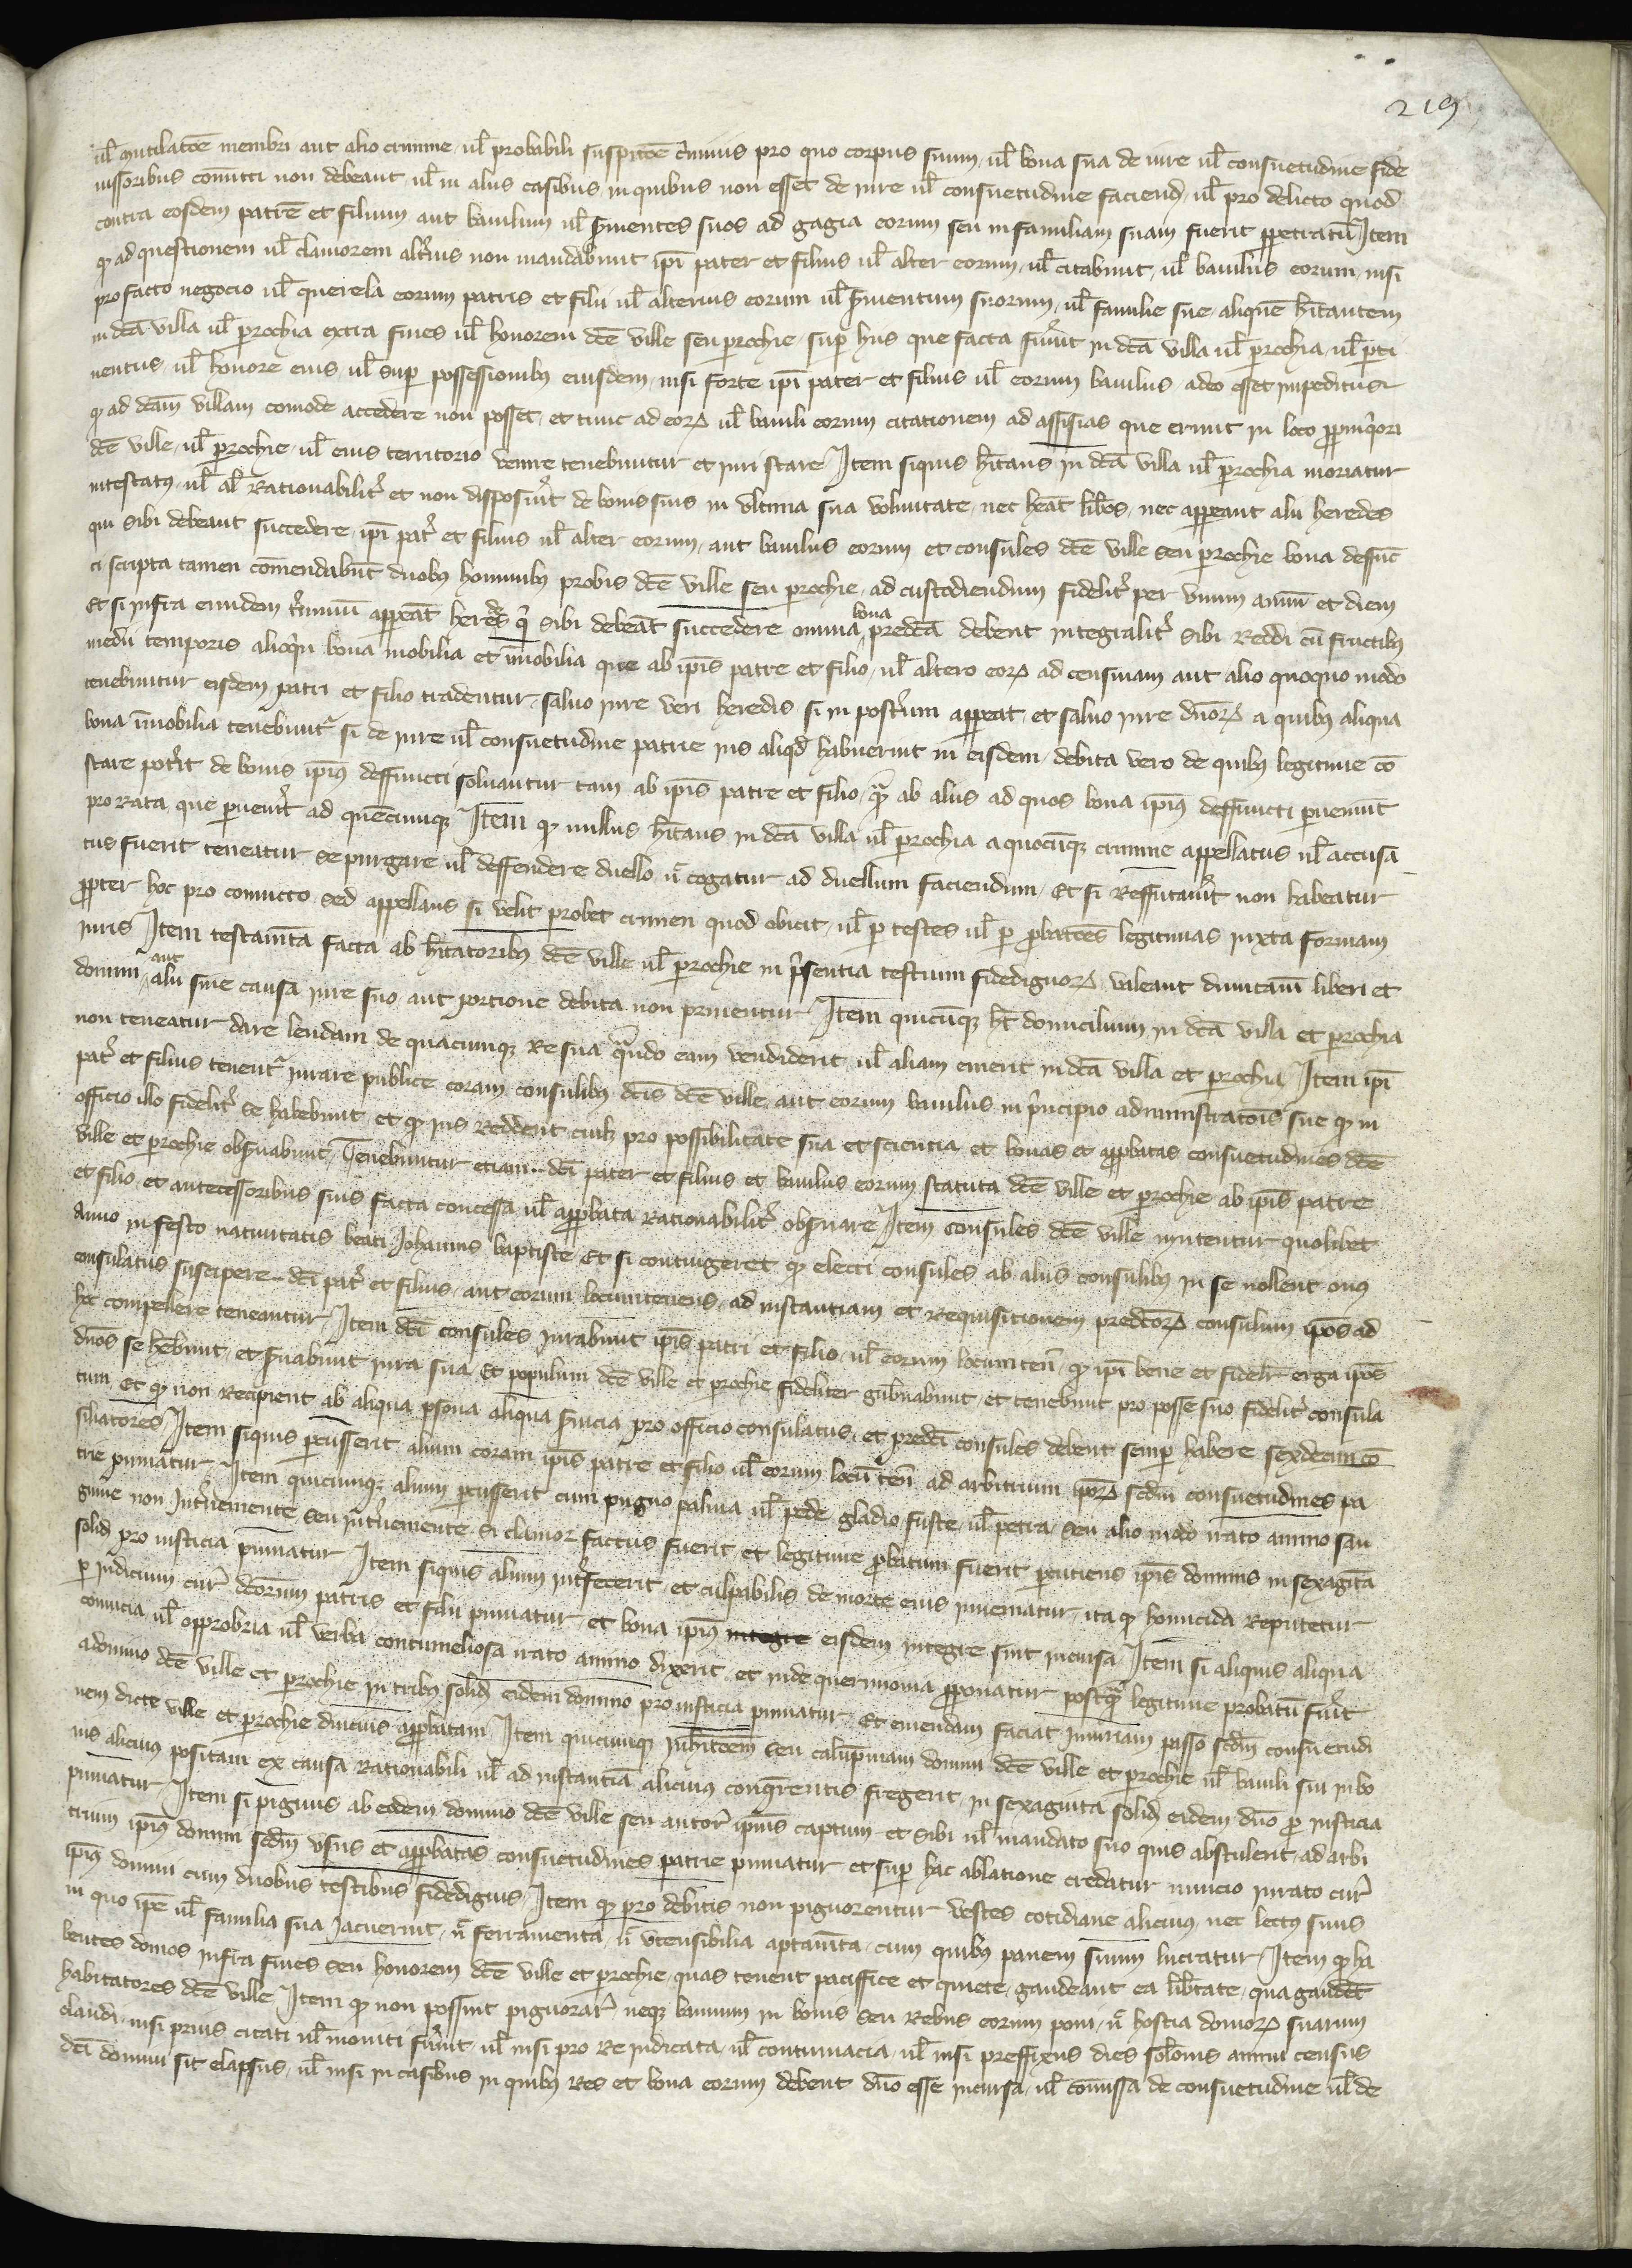 219
ul̄ mutilatōe membri aut alio crimine ul̄ probabili suspicōe c̾iminis pro quo corpus suum ul̄ bona sua de iure ul̄ consuetudine fide
iussoribus cōmitti non debeant ul̄ in aliis casibus in quibus non esset de iure ul̄ consuetudine faciend̄ ul̄ pro delicto quod
contra eosdem patrē et filium aut baiulum ul̄ s̾uientes suos ad gagia eorum seu in familiam suam fuerit ꝑpetratū Item
qꝫ ad questionem ul̄ clamorem alt̾ius non mandabunt ip̄i pater et filius ul̄ alter eorum ul̄ citabunt ul̄ baiulus eorum nisi
pro facto negocio ul̄ querela eorum patris et filii ul̄ alterius eorum ul̄ s̾uientum suorum ul̄ familie sue aliquē hītantem
in dc̄a villa ul̄ ꝑrochia extra fines ul̄ honorem dc̄e ville seu ꝑrochie sup̱ hiis que facta fu̾int in dc̄a villa ul̄ ꝑrochia ul̄ ꝑti
nentiis ul̄ honore eius ul̄ sup̱ possessionibꝫ eiusdem nisi forte ip̄i pater et filius ul̄ eorum baiulus adeo esset impeditus
qꝫ ad dc̄am villam comode accedere non posset et tunc ad eoꝝ ul̄ baiuli eorum citationem ad assisias que erunt in loco ꝓpinq̾ori
dc̄e ville ul̄ ꝑrochie ul̄ eius territorio venire tenebuntur et iuri stare Item siquis hītans in dc̄a villa ul̄ ꝑrochia moriatur
intestatꝰ ul̄ al̄ rationabilit̾ et non disposu̾it de bonis suis in vltima sua voluntate nec hēat lib̾os nec appareant alii heredes
qui sibi debeant succedere ip̄i pat̾ et filius ul̄ alter eorum aut baiulus eorum et consules dc̄e ville seu ꝑrochie bona deffunc
ti scripta tamen cōmendabūt duobꝫ hominibꝫ probis dc̄e ville seu ꝑrochie ad custodiendum fidelit̾ per vnum annū et diem
Et si infra eiusdem t̾minū appareāt heredes q̾ sibi debeāt succedere omnia bona predc̄a debent integralit̾ sibi reddi cū fructibꝫ
medii temporis alioq̾n bona mobilia et īmobilia que ab ip̄is patre et filio ul̄ altero eoꝝ ad censuiam aut alio quoquo modo
tenebuntur eisdem patri et filio tradentur saluo iure veri heredis si in post̾um appareat et saluo iure dn̄oꝝ a quibus aliqua
bona īmobilia tenebunt̾ si de iure ul̄ consuetudine patrie ius aliqd̾ habuerint in eisdem debita vero de quibꝫ legitime cō
stare pot̾it de bonis ip̄iꝰ deffuncti soluantur tam ab ip̄is patre et filio q̾ꝫ ab aliis ad quos bona ip̄iꝰ deffuncti ꝑuenīnt
pro rata que ꝑuen̾it ad quēcumqꝫ Item qꝫ nullus hītans in dc̄a villa ul̄ ꝑrochia a quocūqꝫ crimine appellatus ul̄ accusa
tus fuerit teneatur se purgare ul̄ deffendere duello n̄ cogatur ad duellum faciendum Et si reffutau̾it non habeatur
ꝓpter hoc pro conuicto sed appellans si velit probet crimen quod obicit ul̄ ꝑ testes ul̄ ꝑ ꝓbatōes legitimas iuxta formam
iuris Item testam̄ta facta ab hītatoribꝫ dc̄e ville ul̄ ꝑrochie in p̾sentia testium fidedignoꝝ valeant dumtam̄ liberi et
domini aut alii sine causa iure suo aut portione debita non priuentur Item quicūqꝫ hēt domicilium in dc̄a villa et ꝑrochia
non teneatur dare leudam de quacumqꝫ re sua q̾ndo eam vendiderit ul̄ aliam emerit in dc̄a villa et ꝑrochia Item ip̄i
pat̾ et filius tenent̾ iurare publice coram consulibꝫ dc̄is dc̄e ville aut eorum baiulus in p̾ncipio administratōis sue qꝫ in
officio illo fidelit̾ se habebunt et qꝫ ius reddent cuilꝫ pro possibilitate sua et sciencia et bonas et apꝓbatas consuetudines dc̄e
ville et ꝑrochie obs̾uabunt Tenebuntur etiam dc̄i pater et filius et baiulus eorum statuta dc̄e ville et ꝑrochie ab ip̄is patre
et filio et antecessoribus suis facta concessa ul̄ apꝓbata rationabilit̾ obs̾uare Item consules dc̄e ville mutentur quolibet
Anno in festo natiuitatis beati Iohannis baptiste Et si contingeret qꝫ electi consules ab aliis consulibꝫ in se nollent onꝰ
consulatus suscipere dc̄i pat̾ et filius aut eorum locumtenens ad instantiam et requisitionem predc̄oꝝ consulum ip̄os ad
hoc compellere teneantur Item dc̄i consules iurabunt ip̄is patri et filio ul̄ eorum locumten̄ qꝫ ip̄i bene et fidelit̾ erga ip̄os
dn̄os se hēbunt et s̾uabunt iura sua Et populum dc̄e ville et ꝑrochie fideliter gub̾nabunt et tenebunt pro posse suo fidelit̾ consula
tum Et qꝫ non recipient ab aliqua ꝑsona aliqua s̾uicia pro officio consulatus et predc̄i consules debent semꝑ habere sexdecim cō
siliatores Item siquis ꝑcusserit alium coram ip̄is patre et filio ul̄ eorum locū ten̄ ad arbitrium ip̄oꝝ sc̄dm consuetudines pa
trie puniatur Item quicumqꝫ alium ꝑcusserit cum pugno palma ul̄ pede gladio fuste ul̄ petra seu alio modo irato animo san
guine non int̾ueniente seu int̾ueniente si clamor factus fuerit et legitime ꝓbatum fuerit ꝑcutiens ip̄is dominis in sexagīta
solid̄ pro iusticia puniatur Item siquis alium int̾fecerit et culpabilis de morte eius inueniatur ita qꝫ homicida reputetur
ꝑ iudicium cur̾ dc̄orum patris et filii puniatur et bona ip̄iꝰ integre eisdem integre sint incursa Item si aliquis aliqua
conuicia ul̄ opprobria ul̄ verba contumeliosa irato animo dixerit et inde querimonia ꝓponatur postq̾ꝫ legitime probatū fu̾it
a domino dc̄e ville et ꝑrochie in tribꝫ solid̄ eidem domino pro iusticia puniatur Et emendam faciat iniuriam passo sc̄dm consuetudi
nem dicte ville et ꝑrochie diucius apꝓbatam Item quicumqꝫ inhibitōem seu calūpniam domini dc̄e ville et ꝑrochie ul̄ baiuli sui in bo
nis alicuiꝰ positam ex causa rationabili ul̄ ad instantiā alicuiꝰ conq̾rentis fregerit in sexaginta solid̄ eidem dn̄o ꝓ iusticia
puniatur Item si pignus ab eodem domino dc̄e ville seu auctor̾ ip̄ius captum et sibi ul̄ mandato suo quis abstulerit ad arbi
trium ip̄iꝰ domini sc̄dm vsus et apꝓbatas consuetudines patrie puniatur et suꝑ hac ablatione credatur nuncio iurato cur̾
ip̄iꝰ domini cum duobus testibus fidedignis Item qꝫ pro debitis non pignorentur vestes cotidiane alicuiꝰ nec lectꝰ suus
in quo ip̄e ul̄ familia sua iacuerint n̄ ferramenta n̄ vtensibilia aptam̄ta cum quibꝫ panem suum lucratur Item qꝫ ha
bentes domos infra fines seu honorem dc̄e ville et ꝑrochie quas tenent paciffice et quiete gaudeant ea lib̾tate qua gaudēt
habitatores dc̄e ville Item qꝫ non possint pignorar̾ neqꝫ bannum in bonis seu rebus eorum poni n̄ hostia domoꝝ suarum
claudi nisi prius citati ul̄ moniti fu̾int ul̄ nisi pro re iudicata ul̄ contumacia ul̄ nisi preffixus dies sol̄onis annui census
dc̄i domini sit elapsus ul̄ nisi in casibus in quibꝫ res et bona eorum debent dn̄o esse incursa ul̄ cōmissa de consuetudine ul̄ de